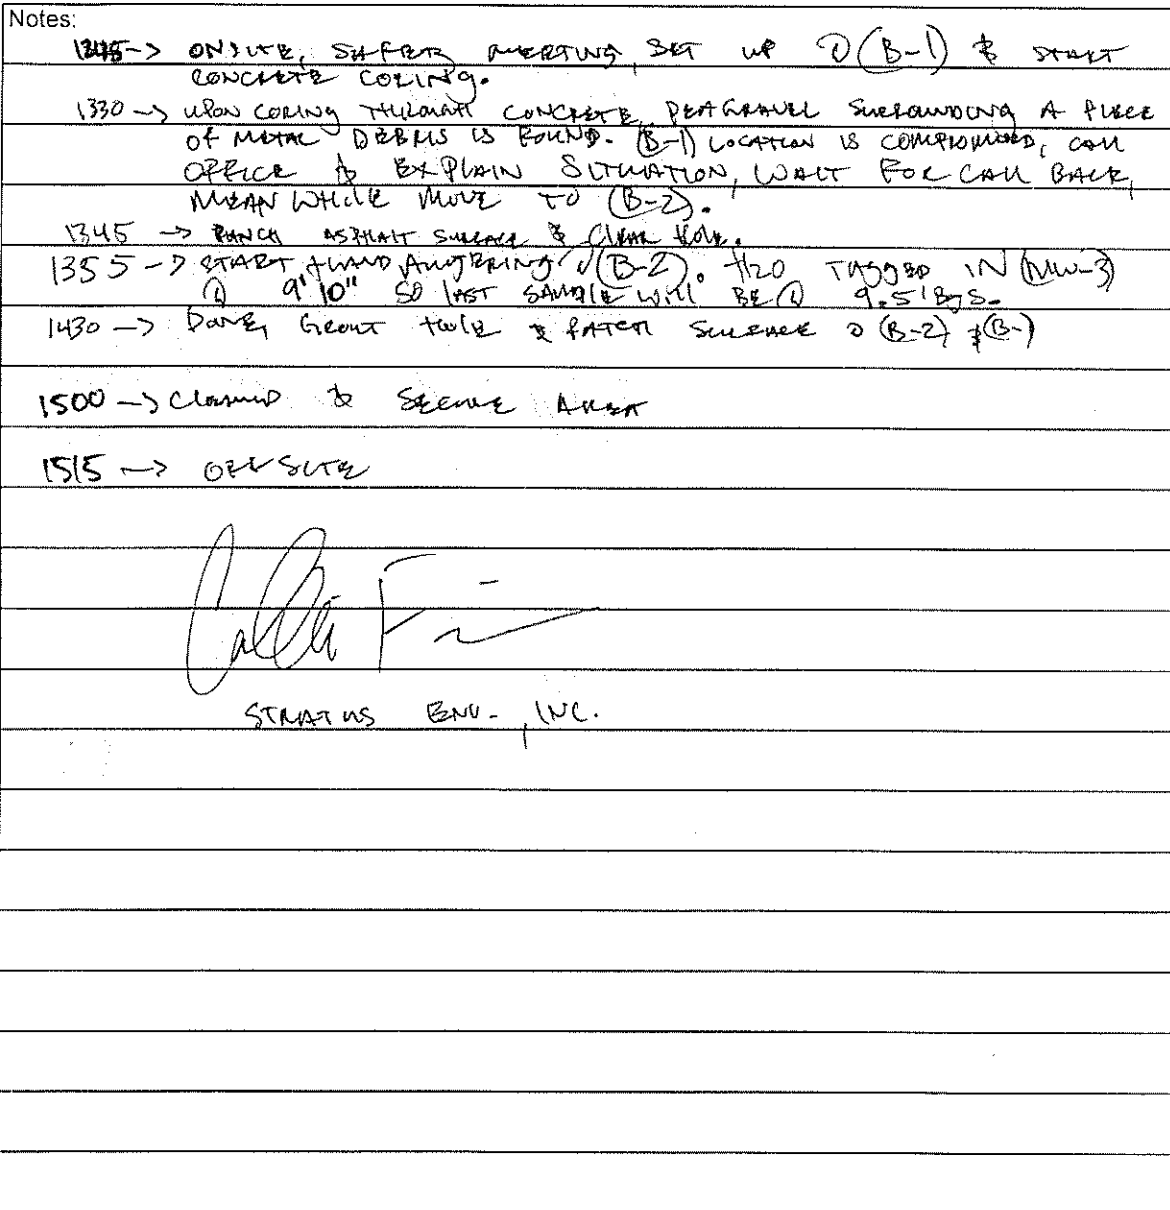 Notes:
-> ONSITE, SAFETY MEETING, SET UP @ (B-1) & START
CONCRETE CORING.
1330 -> UPON CORING THROUGH CONCRETE, PEAGRAVEL SURROUNDING A PIECE
OF METAL DEBRIS IS FOUND. (B-1) LOCATION IS COMPROMISED, CALL
OFFICE & EXPLAIN SITUATION, WAIT FOR CALL BACK,
MEAN WHILE MOVE TO (B-2).
1345 -> PUNCH ASPHALT SURFACE & CLEAR HOLE.
1355 -> START HAND AUGERING @ (B-2). H2O TAGGED IN (MW-3)
@ 9'10" SO LAST SAMPLE WILL BE @ 9.5' BGS.
1430 -> DONE, GROUT HOLE & PATCH SURFACE @ (B-2) & (B-)
1500 -> CLEANUP & SECURE AREA
1515 -> OFFSITE
STRATUS ENV., INC.